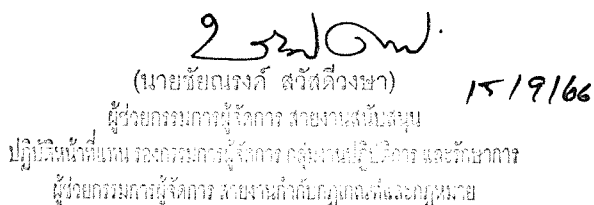 (นายชัยณรงค์ สวัสดีวงษา)
15/9/66
ผู้ช่วยกรรมการผู้จัดการ สายงานสนับสนุน
ปฏิบัติหน้าที่แทน รองกรรมการผู้จัดการ กลุ่มงานปฏิบัติการ และรักษาการ
ผู้ช่วยกรรมการผู้จัดการ สายงานกำกับกฎเกณฑ์และกฎหมาย